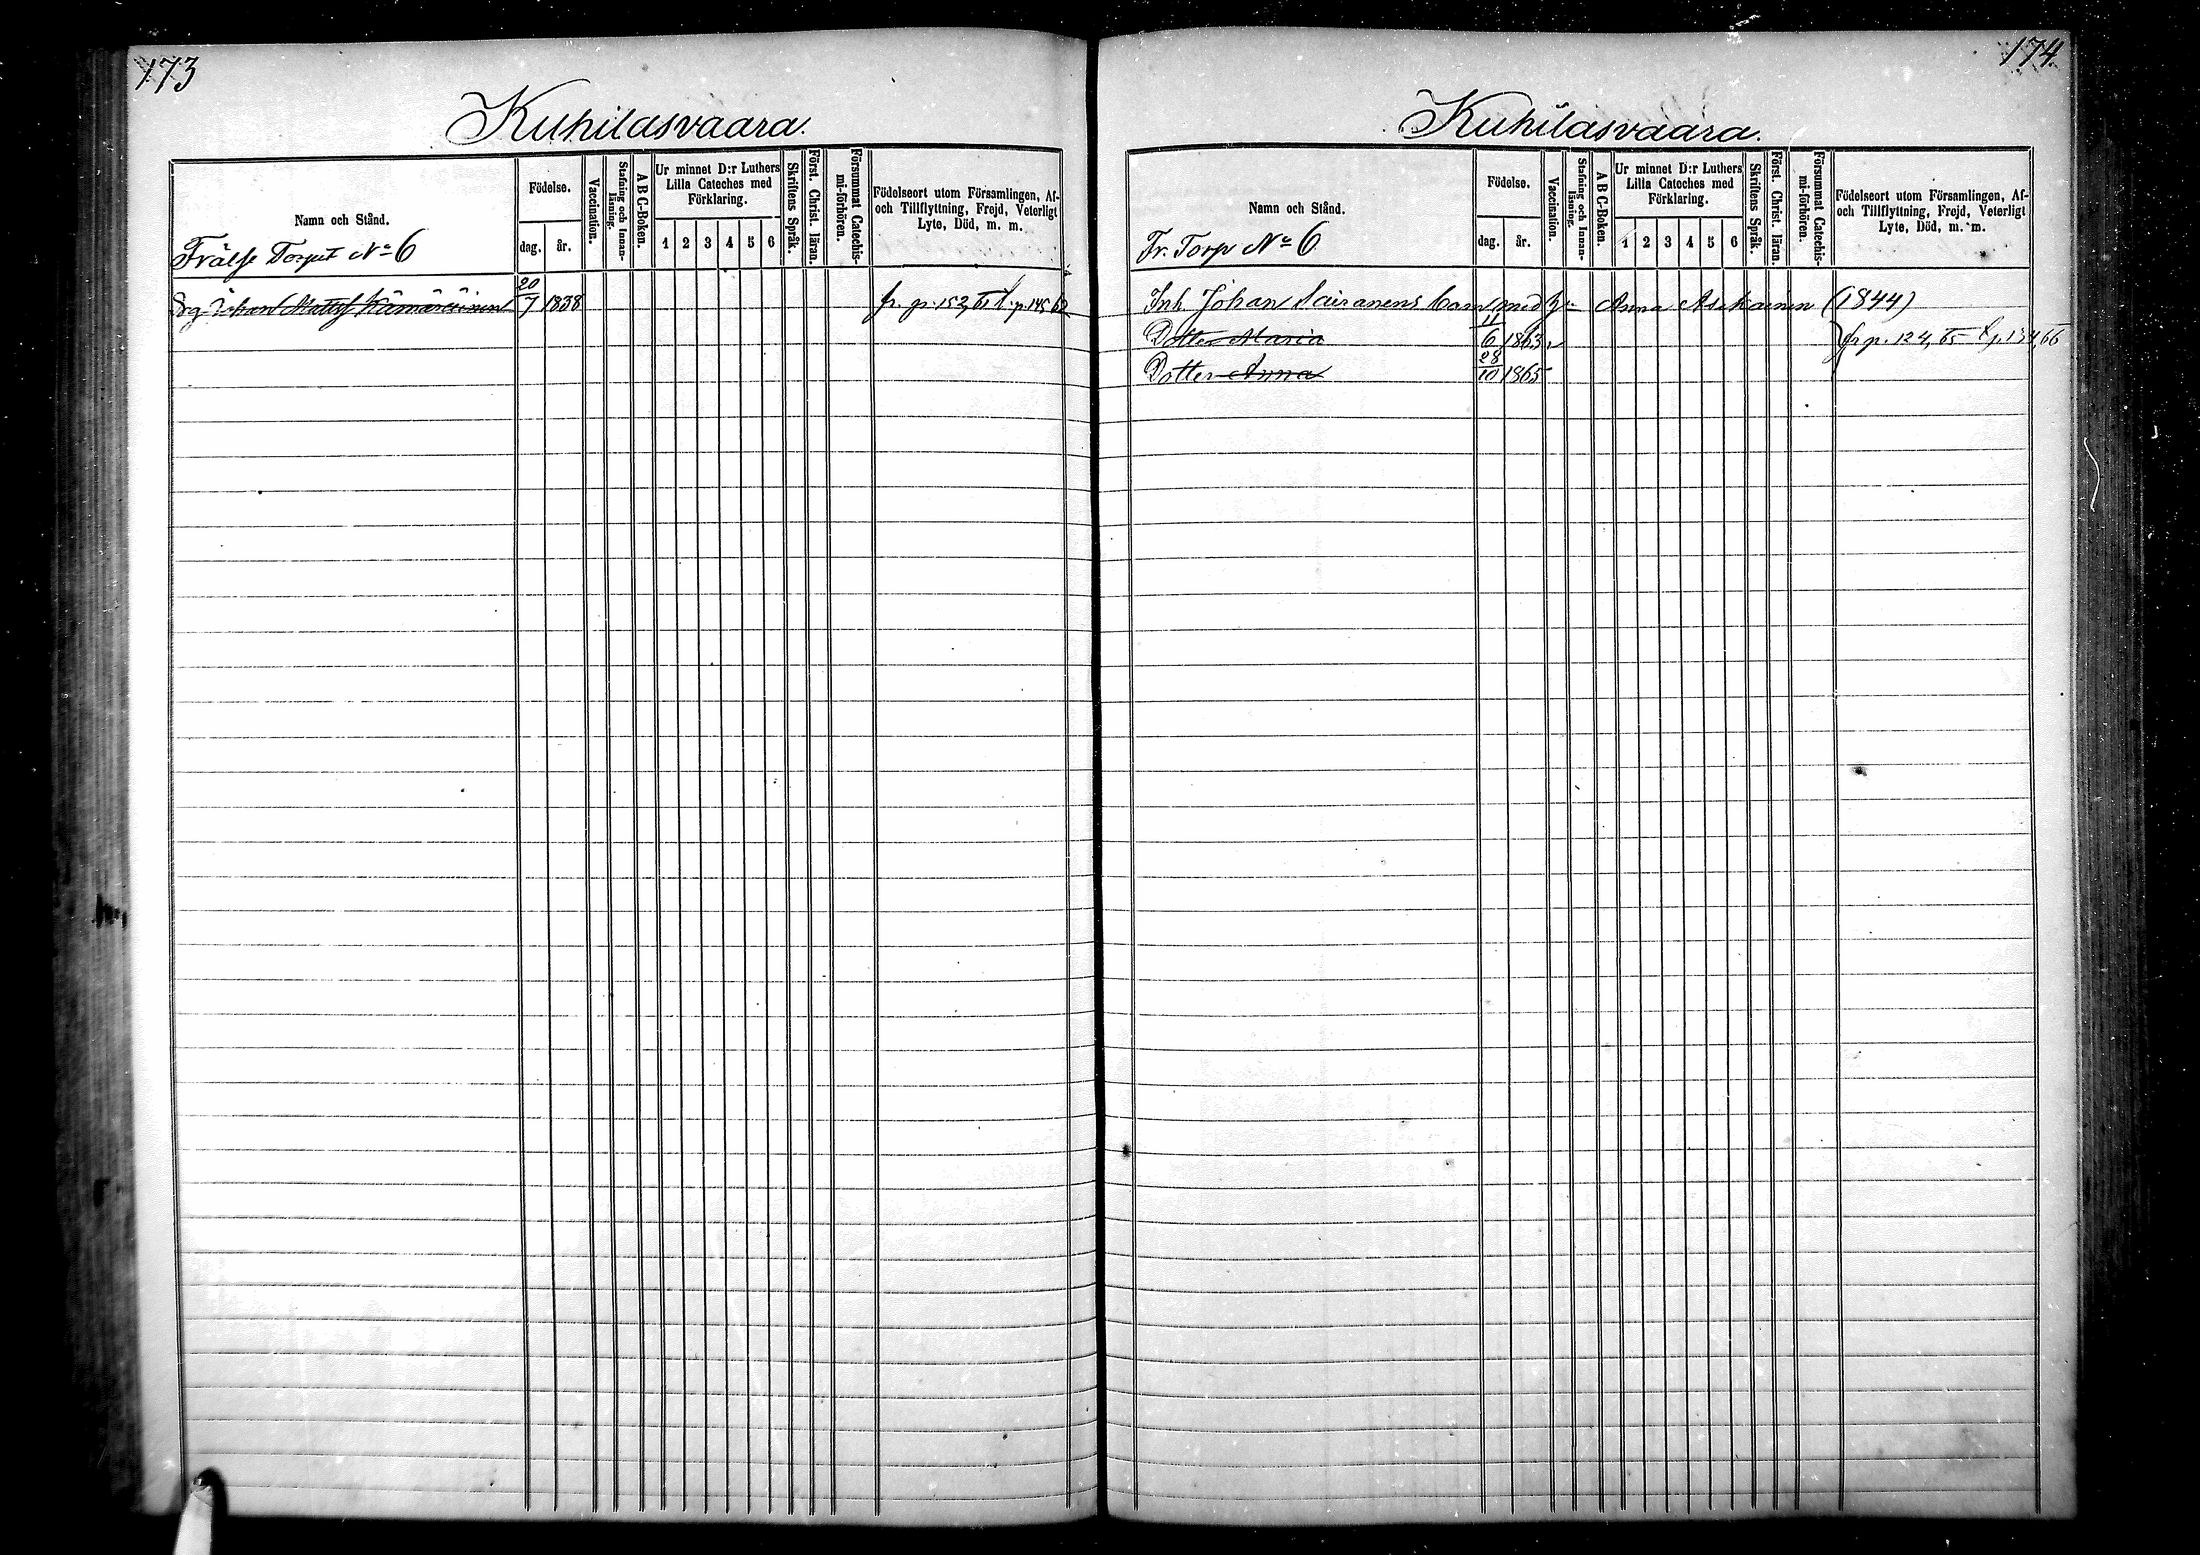 173
Kuhilasvaara.
Namn och Stånd.
Födelse.
dag.
år.
Vaccination.
Stafning och Innan-
läsning.
A B C-Boken.
Ur minnet D:r Luthers
Lilla Cateches med
Förklaring.
1 2 3 4 5 6
Skriftens Språk.
Först. Christ. läran.
Försummat Catechis-
mi-förhören.
Födelseort utom Församlingen, Af-
och Tillflyttning, Frejd, Veterligt
Lyte, Död, m. m.
Frälse Torpet No 6
Johan Mattss Kämäräinen 20/7 1838 fr. p. 152, 61 t. p. 145, 62
174
Kuhilasvaara.
Namn och Stånd.
Födelse.
dag.
år.
Vaccination.
Stafning och Innan-
läsning.
A B C-Boken.
Ur minnet D:r Luthers
Lilla Cateches med
Förklaring.
1 2 3 4 5 6
Skriftens Språk.
Först. Christ. läran.
Försummat Catechis-
mi-förhören.
Födelseort utom Församlingen, Af-
och Tillflyttning, Frejd, Veterligt
Lyte, Död, m. m.
Fr. Torp No 6
Inh Johan Sairanens barn med Anna Askainen (1844)
Dotter Maria 11/6 1863 fr p. 124, 65 t p. 134, 66
Dotter Anna 28/10 1865